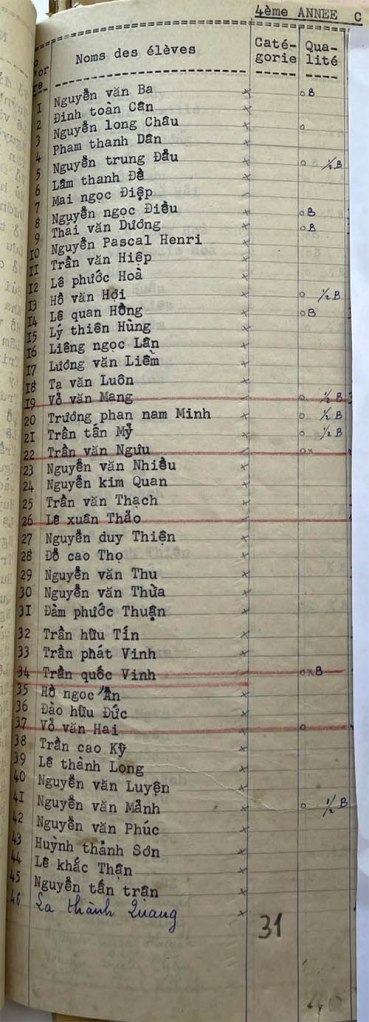 4ème ANNEE C
Noms des élèves Caté- Qua-
gorie lité
1 Nguyễn văn Ba x o B
2 Đinh toàn Cân x
3 Nguyễn long Châu x o
4 Phạm thanh Dân x
5 Nguyễn trung Đẩu x o B ½B
6 Lâm thanh Đề x
7 Mai ngọc Điệp x
8 Nguyễn ngọc Điều x o B
9 Thái văn Dương x o B
10 Nguyễn Pascal Henri x
11 Trần văn Hiệp x
12 Lê phước Hoà x
13 Hồ văn Hợi x o ½ B
14 Lê quan Hồng x o B
15 Lý thiên Hùng x
16 Liêng ngọc Lân x
17 Lương văn Liêm x
18 Tạ văn Luôn x
19 Võ văn Mang x o ½ B
20 Trương phan nam Minh x o ½ B
21 Trần tấn Mỹ x o ½ B
22 Trần văn Ngưu x ox
23 Nguyễn văn Nhiều x
24 Nguyễn kim Quan x
25 Trần văn Thạch x
26 Lê xuân Thảo x
27 Nguyễn duy Thiện x
28 Đỗ cao Thọ x
29 Nguyễn văn Thu x
30 Nguyễn văn Thừa x
31 Đàm phước Thuận x
32 Trần hữu Tín x
33 Trần phát Vinh x
34 Trần quốc Vinh oxB
35 Hồ ngọc Ẩn x
36 Đào hữu Đức x
37 Võ văn Hai x o
38 Trần cao Kỳ x
39 Lê thành Long x
40 Nguyễn văn Luyện x
41 Nguyễn văn Mảnh x o ½ B
42 Nguyễn văn Phúc x
43 Huỳnh thành Sơn x
44 Lê khắc Thận x
45 Nguyễn tấn trận x
46 La thành Quang x
31